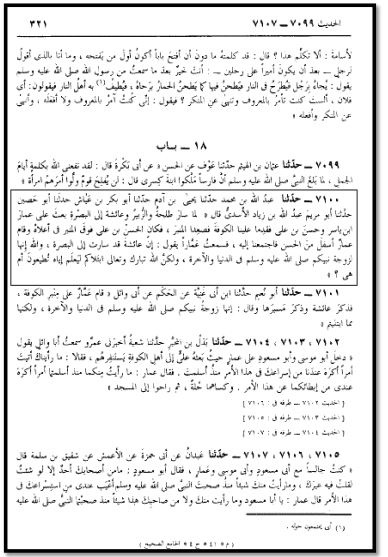 الحديث ٧٠٩٩ ــ ٧١٠٧
٣٢١
لأسامة : ألا تكلِّم هذا ؟ قال : قد كلمته ما دون أن أفتح باباً أكون أول من يَفتحه ، وما أنا بالذى أقول
لرجل ــ بعد أن يكون أميراً على رجلين ــ : أنت خيرٌ بعد ما سمعتُ من رسول الله صلى الله عليه وسلم
يقول : يُجاءُ برجُل فيُطرَحُ فى النار فيَطحنُ فيها كما يَطحنُ الحمارُ برَحاهُ ، فيُطيفُ(١) به أهل النار فيقولون : أى
فلان ، ألست كنت تأمرُ بالمعروف وتنهى عن المنكر ؟ فيقول : إنِّى كنتُ آمرُ بالمعروف ولا أفعله ، وأنهى
عن المنكر وأفعله »
١٨ ــ بــاب
٧٠٩٩ ــ حدّثنا عثمان بن الهيثم حدَّثنا عَوْف عن الحسن « عن أبى بَكْرة قال : لقد نفعنى الله بكلمة أيامَ
الجمل ، لما بَلَغَ النبىَّ صلى الله عليه وسلم أنَّ فارساً مَلَّكوا ابنة كِسرى قال : لن يُفلِحَ قومٌ ولَّوا أمرَهم امرأة »
٧١٠٠ ــ حدّثنا عبدُ الله بن محمد حدَّثنا يحيى بن آدم حدَّثنا أبو بكر بن عَيّاش حدثنا أبو حَصين
حدَّثنا أبو مريم عبدُ الله بن زياد الأسدىُّ قال « لما سارَ طلحةُ والزُّبيرُ وعائشة إلى البَصْرةِ بعثَ علىٌّ عمارَ
ابن ياسر وحسنَ بن على فقَدِما علينا الكوفةَ فصَعِدا المنبرَ ، فكان الحسنُ بن علىّ فوق المنبر فى أعلاهُ وقام
عمارٌ أسفلَ منَ الحسن فاجتمعنا إليه ، فسمعتُ عمّاراً يقول : إن عائشةَ قد سارت إلى البصرة ، والله إنها
لزوجة نبيكم صلى الله عليه وسلم فى الدنيا والآخرة ، ولكنَّ الله تبارك وتعالى ابتلاكم ليَعلم إياه تُطيعون أم
هى ؟ »
٧١٠١ ــ حدّثنا أبو نُعيم حدَّثنا ابن أبى غَنِيَّة عن الحكم عن أبى وائل « قام عَمَّارٌ على منبر الكوفة ،
فذكر عائشة وذكرَ مَسيرَها وقال : إنها زوجةُ نبيكم صلى الله عليه وسلم فى الدنيا والآخرة ، ولكنها
مما ابتليتم »
٧١٠٢ ، ٧١٠٣ ، ٧١٠٤ ــ حدّثنا بَدَلُ بن المحبَّر حدَّثنا شعبةُ أخبرنى عمرٌو سمعتُ أبا وائل يقول
« دخل أبو موسى وأبو مسعودٍ على عمار حيثُ بَعثهُ علىٌّ إلى أهل الكوفةِ يَستنفِرهُم ، فقالا : ما رأيناكَ أتيتَ
أمراً أكرَهَ عندَنا من إسراعكَ فى هذا الأمر منذُ أسلمتَ . فقال عمار : ما رأيتُ منكما منذ أسلمتما أمراً أكرَهَ
عندى من إبطائكما عن هذا الأمر . وكساهما حُلَّة حُلَّة ، ثم راحوا إلى المسجد »
[ الحديث ٧١٠٢ ــ طرفه فى : ٧١٠٦ ]
[ الحديث ٧١٠٣ ــ طرفه فى : ٧١٠٥ ]
[ الحديث ٧١٠٤ ــ طرفه فى : ٧١٠٧ ]
٧١٠٥ ، ٧١٠٦ ، ٧١٠٧ ــ حدّثنا عَبدانُ عن أبى حمزةَ عن الأعمش عن شقيق بن سلمة قال
« كنتُ جالساً مع أبى مسعود وأبى موسى وعَمّار ، فقال أبو مسعود : ما من أصحابك أحدٌ إلا لو شئتُ
لقلتُ فيه غيركَ ، وما رأيتُ منكَ شيئاً منذ صحبتَ النبىَّ صلى الله عليه وسلم أعْيَبَ عندى من استِسْراعك فى
هذا الأمر قال عمار : يا أبا مسعود وما رأيت منكَ ولا من صاحبِكَ هذا شيئاً منذ صحبْتما النبىَّ صلى الله عليه
(١) أى يجتمعون حوله .
( م ٤١٥ ج ٤ الجامع الصحيح )